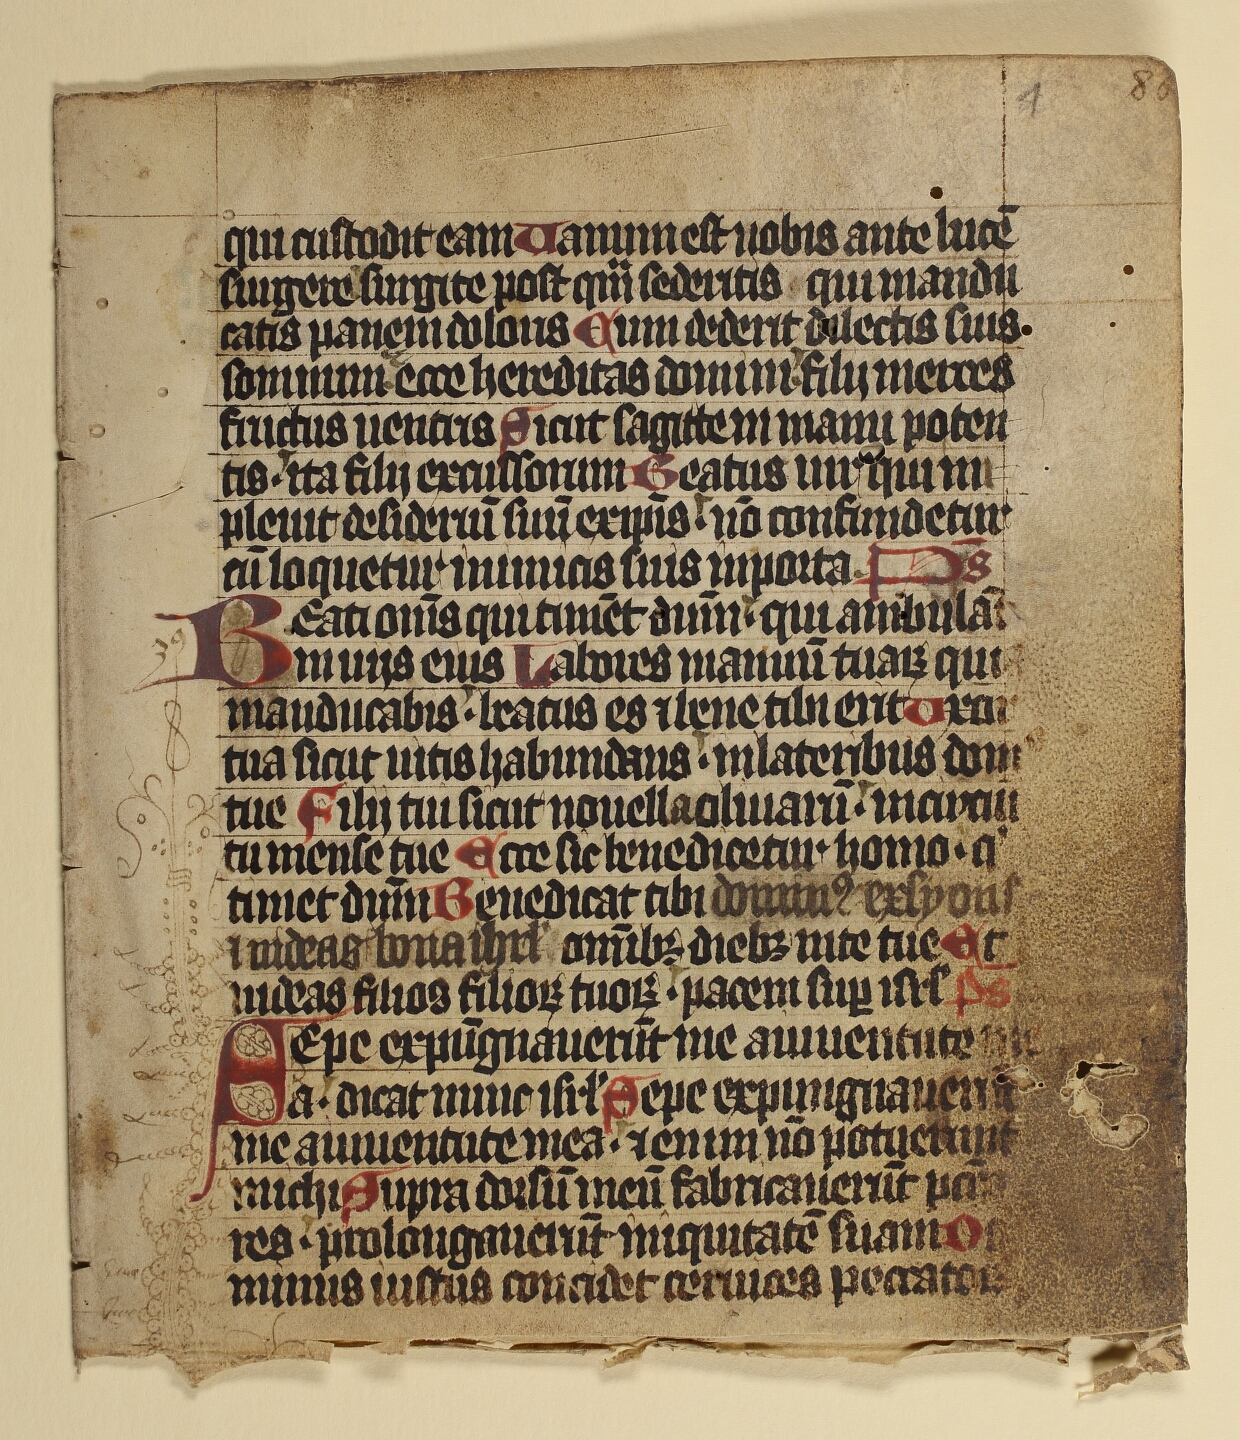 4 86
qui custodit eam Uanum est uobis ante lucē
surgere surgite post qͣm sederitis qui mandu
catis panem doloris Cum dederit dilectis suis
sompnum ecce hereditas domini filij merces
fructus uentris Sicut sagitte in manu poten
tis · ita filij excussorum Beatus uir qui im
pleuit desideriū suū ex ipīs · nō confundetur
cū loquetur inimicis suis in porta. Ps
Beati om̄s qui timēt dnm̄ · qui ambulāt
in uijs eius Labores manuū tuaꝝ qui
manducabis · beatus es ⁊ bene tibi erit Uxor
tua sicut uitis habundans · in lateribus dom
tue Filij tui sicut nouella oliuarū · in circui
tu mense tue Ecce sic benedicetur homo · q
timet dnm̄ Benedicat tibi dominꝰ ex syon
⁊ uideas bona ihrl omībꝫ diebꝫ uite tue Et
uideas filios filioꝝ tuoꝝ · pacem sup isrl Ps
Sepe expūgnauerūt me a iuuentute
a · dicat nunc isrl Sepe expungnauerūt
me a iuuentute mea · ⁊ enim nō potuerunt
michi Supra dorsū meū fabricauerūt
res · prolongauerūt iniquitatē suam Do
minus iustus concidet ceruices peccator